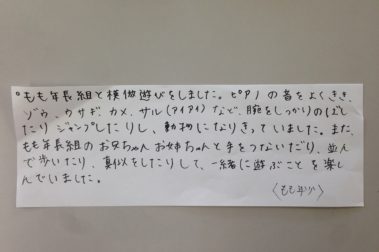 。もも年長組と模倣遊びをしました。ピアノの音をよくきき、
ゾウ、ウサギ、カメ、サル(アイアイ)など、腕をしっかりのばし
たりジャンプしたりし、動物になりきっていました。また、
もも年長組のお兄ちゃんお姉ちゃんと手をつないだり、並ん
で歩いたり、真似をしたりして、一緒に遊ぶことを楽し
んでいました。